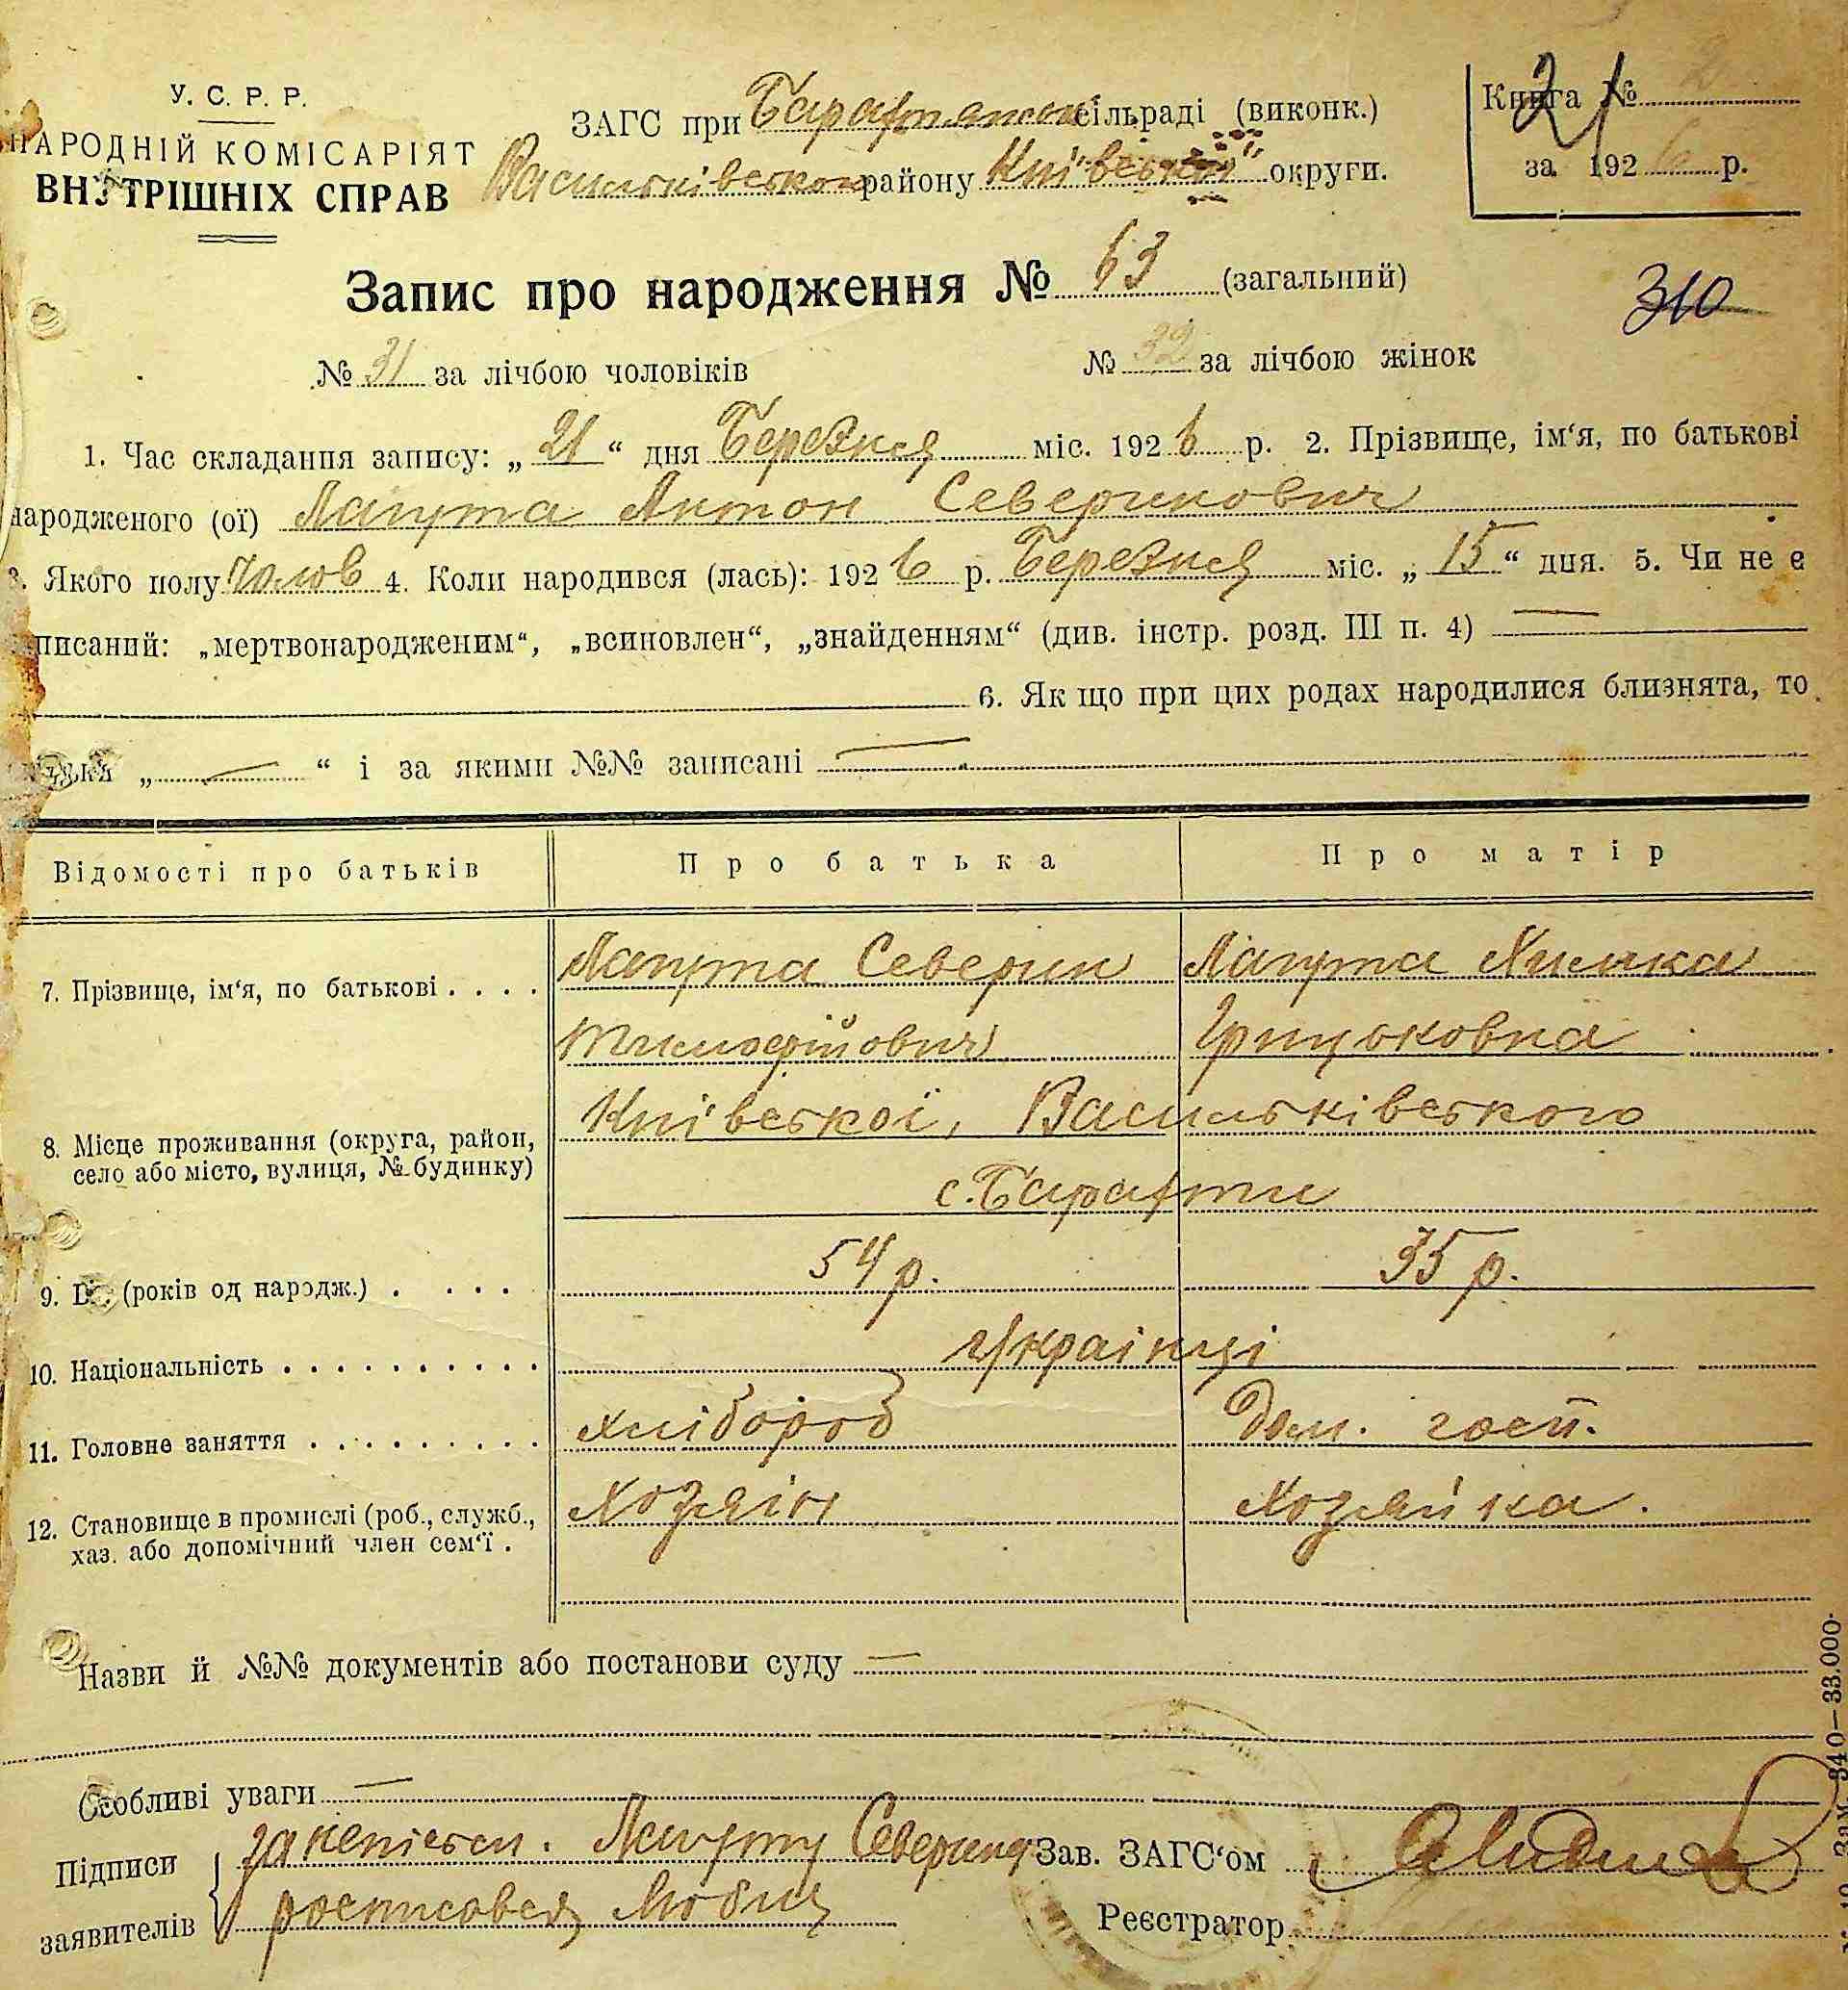 У. С. Р. Р.
НАРОДНІЙ КОМІСАРІЯТ
ВНУТРІШНІХ СПРАВ
ЗАГС при Барахтянськ сільраді (виконк.)
Васильківському району Київської округи.
Книга № 21
за 1926 р.
Запис про народження № 63 (загальний)
310
№ 31 за лічбою чоловіків № 32 за лічбою жінок
1. Час складання запису: „21“ дня Березня міс. 1926 р. 2. Прізвище, ім‘я, по батькові
народженого (ої) Лапута Антон Северинович
3. Якого полу чолов 4. Коли народився (лась): 1926 р. Березня міс. „15“ дня. 5. Чи не є
писаний: „мертвонародженим“, „всиновлен“, „знайденням“ (див. інстр. розд. III п. 4) —
6. Як що при цих родах народилися близнята, то
„ — “ і за якими №№ записані —
Відомості про батьків Про батька Про матір
7. Прізвище, ім‘я, по батькові . . . . Лапута Северин Лапута Химка
Тимофійович Грицьковна
8. Місце проживання (округа, район, село або місто, вулиця, № будинку) Київської, Васильківського
с. Барахти
9. Вік (років од народж.) . . . . 54 р. 35 р.
10. Національність . . . . . . . . . . Українці
11. Головне заняття . . . . . . . . . хлібороб Дом. госп.
12. Становище в промислі (роб., служб., хаз. або допомічний член сем‘ї . Хозяін Хозяйка.
Назви й №№ документів або постанови суду —
Особливі уваги —
Підписи заявителів за неписьм. Лапуту Северина
росписовся
Зав. ЗАГС‘ом
Реєстратор
340—33.000.